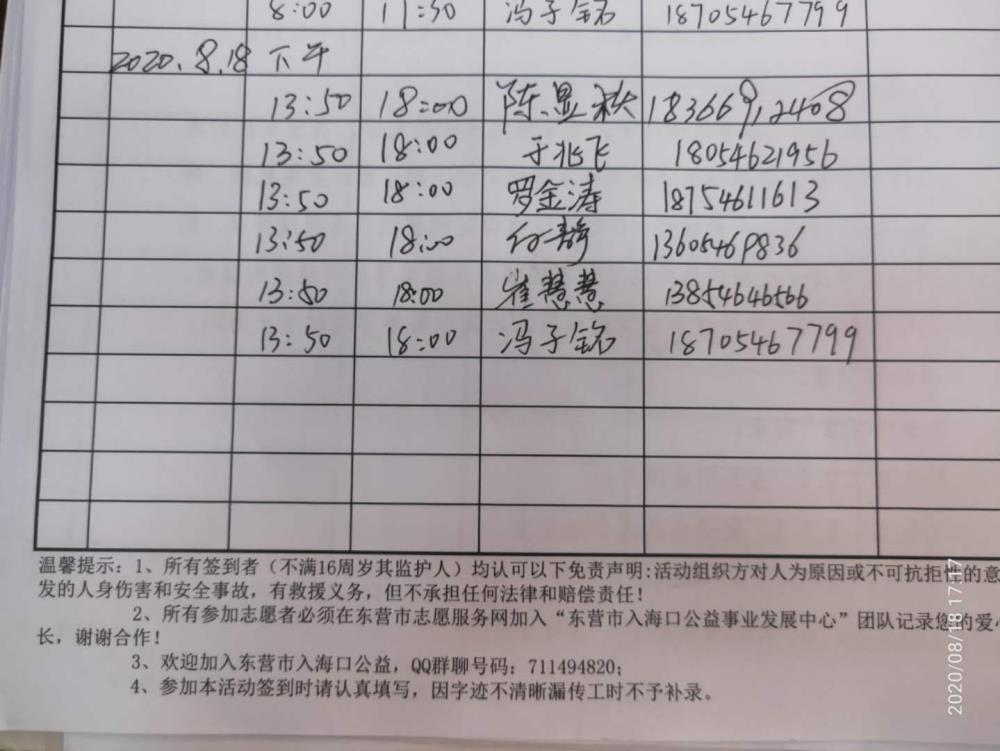 8:00 11:30 冯子铭 18705467799
2020.8.18 下午
13:50 18:00 陈显秋
13:50 18:00 于兆飞 18054621956
13:50 18:00 罗金涛 18754611613
13:50 18:00 付静 13605469836
13:50 18:00 崔慧慧 13854646566
13:50 18:00 冯子铭 18705467799
温馨提示:1、所有签到者（不满16周岁其监护人）均认可以下免责声明:活动组织方对人为原因或不可抗拒性的意
发的人身伤害和安全事故，有救援义务，但不承担任何法律和赔偿责任！
2、所有参加志愿者必须在东营市志愿服务网加入“东营市入海口公益事业发展中心”团队记录您的爱心
长，谢谢合作！
3、欢迎加入东营市入海口公益，QQ群聊号码：711494820；
4、参加本活动签到时请认真填写，因字迹不清晰漏传工时不予补录。
2020/08/18 17:17